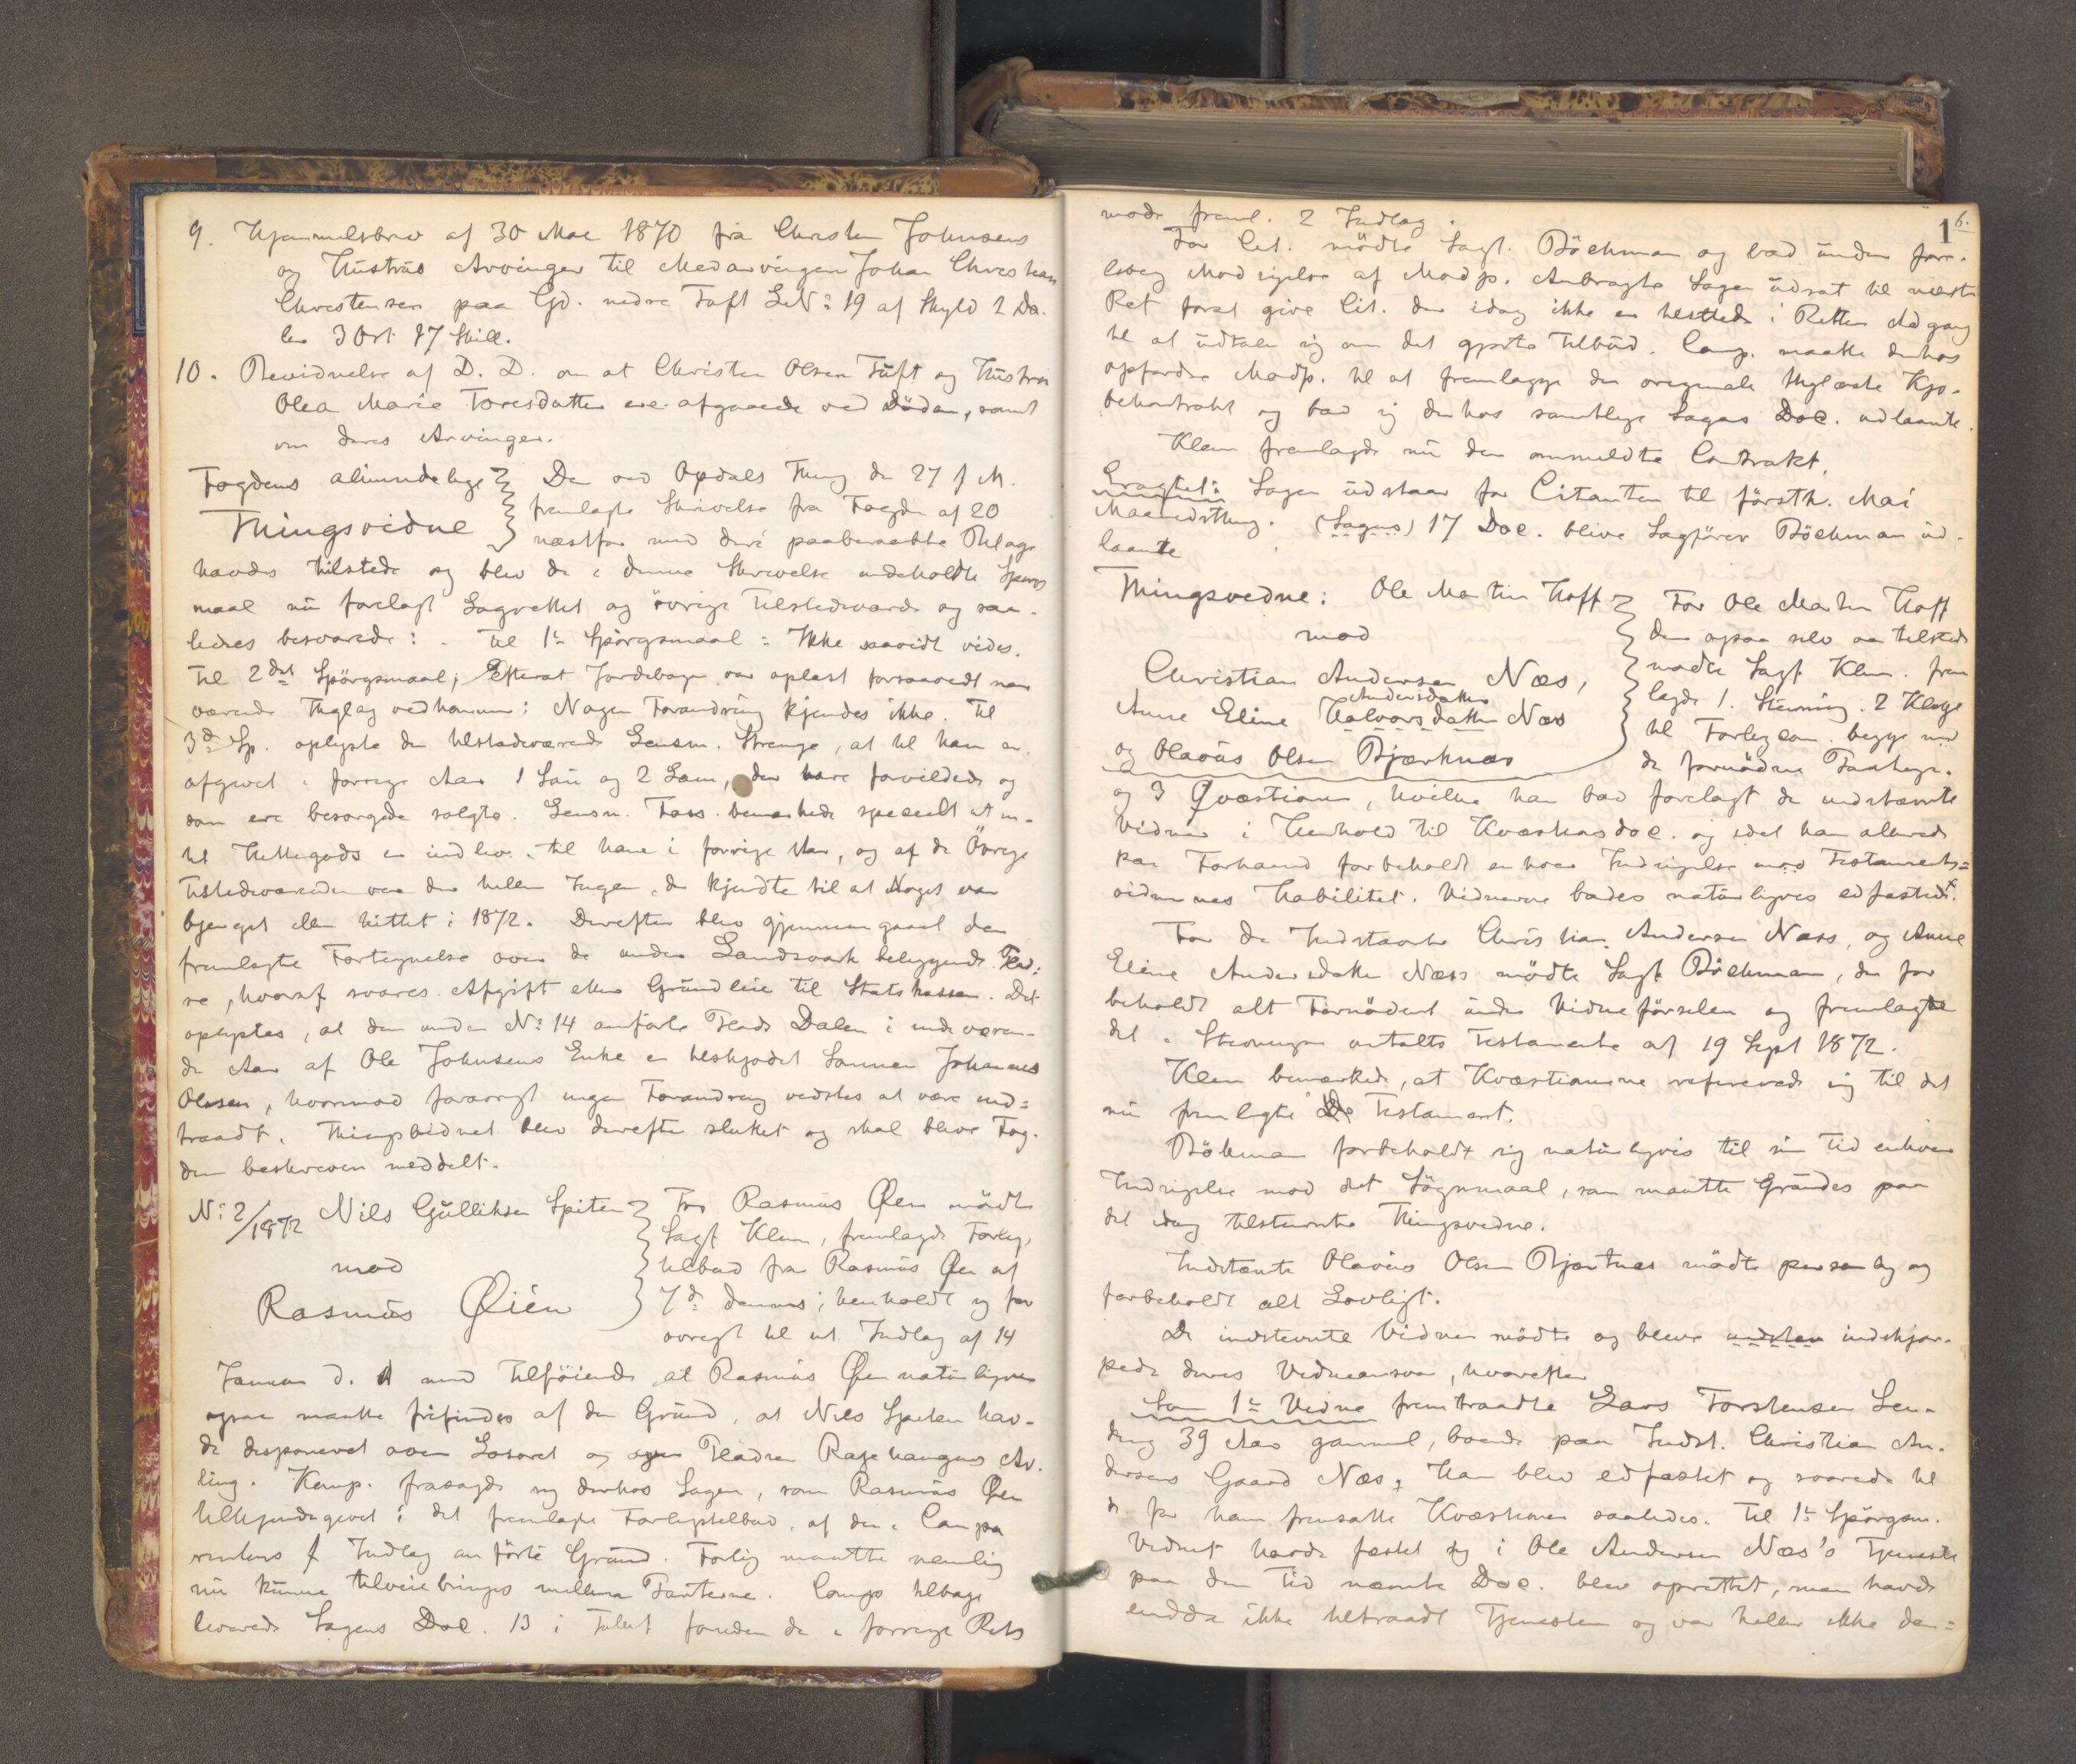 9. Hjemmelsbrev af 30 Mai 1870 fra Christen Johnsens
og Hustrus Arvinger til Medarvingen Johan Christian
Christensen paa Gd. nedre Tuft LNo 19 af Skyld 2 Da-
ler 3 Ort 17 Skill.
10. Bevidnelse af D. D. om at Christen Olsen Tuft og Hustru
Olea Marie Toresdatter ere afgaaede ved Döden, samt
om deres Arvinger.
Fogdens almindelige
Thingsvidne
Det ved Opdals Thing den 27 f. M.
fremlagte Skrivelse fra Fogden af 20
næstfør med deri paaberaabte Bilage
havdes tilstede og blev de i denne Skrivelse indeholdte Spörgs
maal nu forelagt Lagrettet og övrige Tilstedeværende og saa-
ledes besvarede: - Til 1ste Spörgsmaal: Ikke saavidt vides.
Til 2det Spörgsmaal; Efterat Jordebogen var oplæst forsaavidt nær
værende Thinglag vedkommer: Nogen Forandring kjendes ikke. Til
3die Sp. oplyste den tilstedeværende Lensm. Strenge, at til ham er
afgivet i forrige Aar 1 Sau og 2 Lam, der vare forvildede og
som ere besörgede solgte. Lensm. Foss bemærkede specielt at in-
tet Hittegods er indlev. til ham i forrige Aar, og af de Övrige
Tilstedeværende var der heller Ingen, der kjendte til at Noget var
bjerget eller hittet i 1872. Derefter blev gjennemgaaet den
fremlagte Fortegnelse over de under Landsværk beliggende Plad-
se, hvoraf svares Afgift eller Grundleie til Statskassen. Det
oplystes, at den under No 14 anförte Plads Dalen i indeværen-
de Aar af Ole Johnsens Enke er tilskjödet Sönnen Johannes
Olsen, hvorimod forövrigt ingen Forandring vidstes at være ind-
traadt. Thingsvidnet blev derefter sluttet og skal blive Fog-
den beskreven meddelt.
No 2/1872 Nils Gulliksen Spiten
mod
Rasmus Øien
For Rasmus Øien mödte
Sagf. Klem, fremlagde Forligs
tilbud fra Rasmus Øien af
7de dennes; henholdt sig for
övrigt til sit Indlæg af 14
Januar d. A. med Tilföiende at Rasmus Øien naturligvis
ogsaa maatte frifindes af den Grund, at Nils Spiten hav-
de disponeret over Lösöret og over Pladsen Ragehaugens Av-
ling. Komp. frasagde sig derhos Sagen, som Rasmus Øien
tilkjendegivet i det fremlagte Forligstilbud, af den i Compa
rentens f. Indlæg anförte Grund. Forlig maatte nemlig
nu kunne tilveiebringes mellem Parterne. Comp. tilbage
leverede Sagens Doc. 13 i Tallet foruden de i forrige Rets
möde freml. 2 Indlæg.
16.
For Cit. mödte Sagf. Böckman og bad under fore-
löbig Modsigelse af Modp. Anbragte Sagen udsat til næste
Ret forat give Cit. der idag ikke er tilstede i Retten Adgang
til at udtale sig om det gjorte Tilbud. Comp. maatte derhos
opfordre Modp. til at fremlægge den originale thinglæste Kjö-
bekontrakt og bad sig derhos samtlige Sagens Doc. udlaante.
Klem fremlagde nu den ommeldte Contrakt.
Eragtet: Sagen udstaar for Citanten til förstk. Mai
Maanedsthing. (Sagens) 17 Doc. bleve Sagförer Böckman ud-
laante
Thingsvidne: Ole Martin Hoff
mod
Christian Andersen Næs,
Andersdatter
Anne Eline Halvorsdatter Næs
og Olavus Olsen Bjærknæs
For Ole Martin Hoff
der ogsaa selv var tilstede
mödte Sagf. Klem. frem
lagde 1. Stevning. 2 Klage
til Forligscom. begge med
de fornödne Paategn.
og 3 Qvæstioner, hvilke han bad forelagt de indstevnte
Vidner i Henhold til Kvæstionsdoc. og idet han allerede
paa Forhaand forbeholdt enhver Indsigelse mod Testaments-
vidnernes Habilitet. Vidnerne bades naturligvis edfæstede.
For de Indstævnte Christian Andersen Næss, og Anne
Eline Andersdatter Næss mödte Sagf. Böckman, der for
beholdt alt Fornödent under Vidneförselen og fremlagde
det i Stevningen omtalte Testamente af 19 Sept 1872.
Klem bemærkede, at Kvæstionerne refererede sig til det
nu fremlagte Do Testament.
Böckman forbeholdt sig naturligvis til sin Tid enhver
Indsigelse mod det Sögnmaal, som maatte grundes paa
det idag tilstevnte Thingsvidne.
Indstævnte Olavus Olsen Bjertnæs mödte personlig og
forbeholdt alt Lovligt.
De indstevnte Vidner mödte og bleve indskjær-
pede deres Vidneansvar, hvorefter
Som 1ste Vidne fremtraadte Lars Torstensen Sen-
ding 39 Aar gammel, boende paa Indst. Christian An-
dersens Gaard Næs; han blev edfæstet og svarede til
de for ham fremsatte Kvæstioner saaledes. Til 1ste Spörgsm.
Vidnet havde fæstet sig i Ole Andersen Næs's Tjeneste
paa den Tid nævnte Doc. blev oprettet, men havde
endda ikke tiltraadt Tjenesten og var heller ikke der-